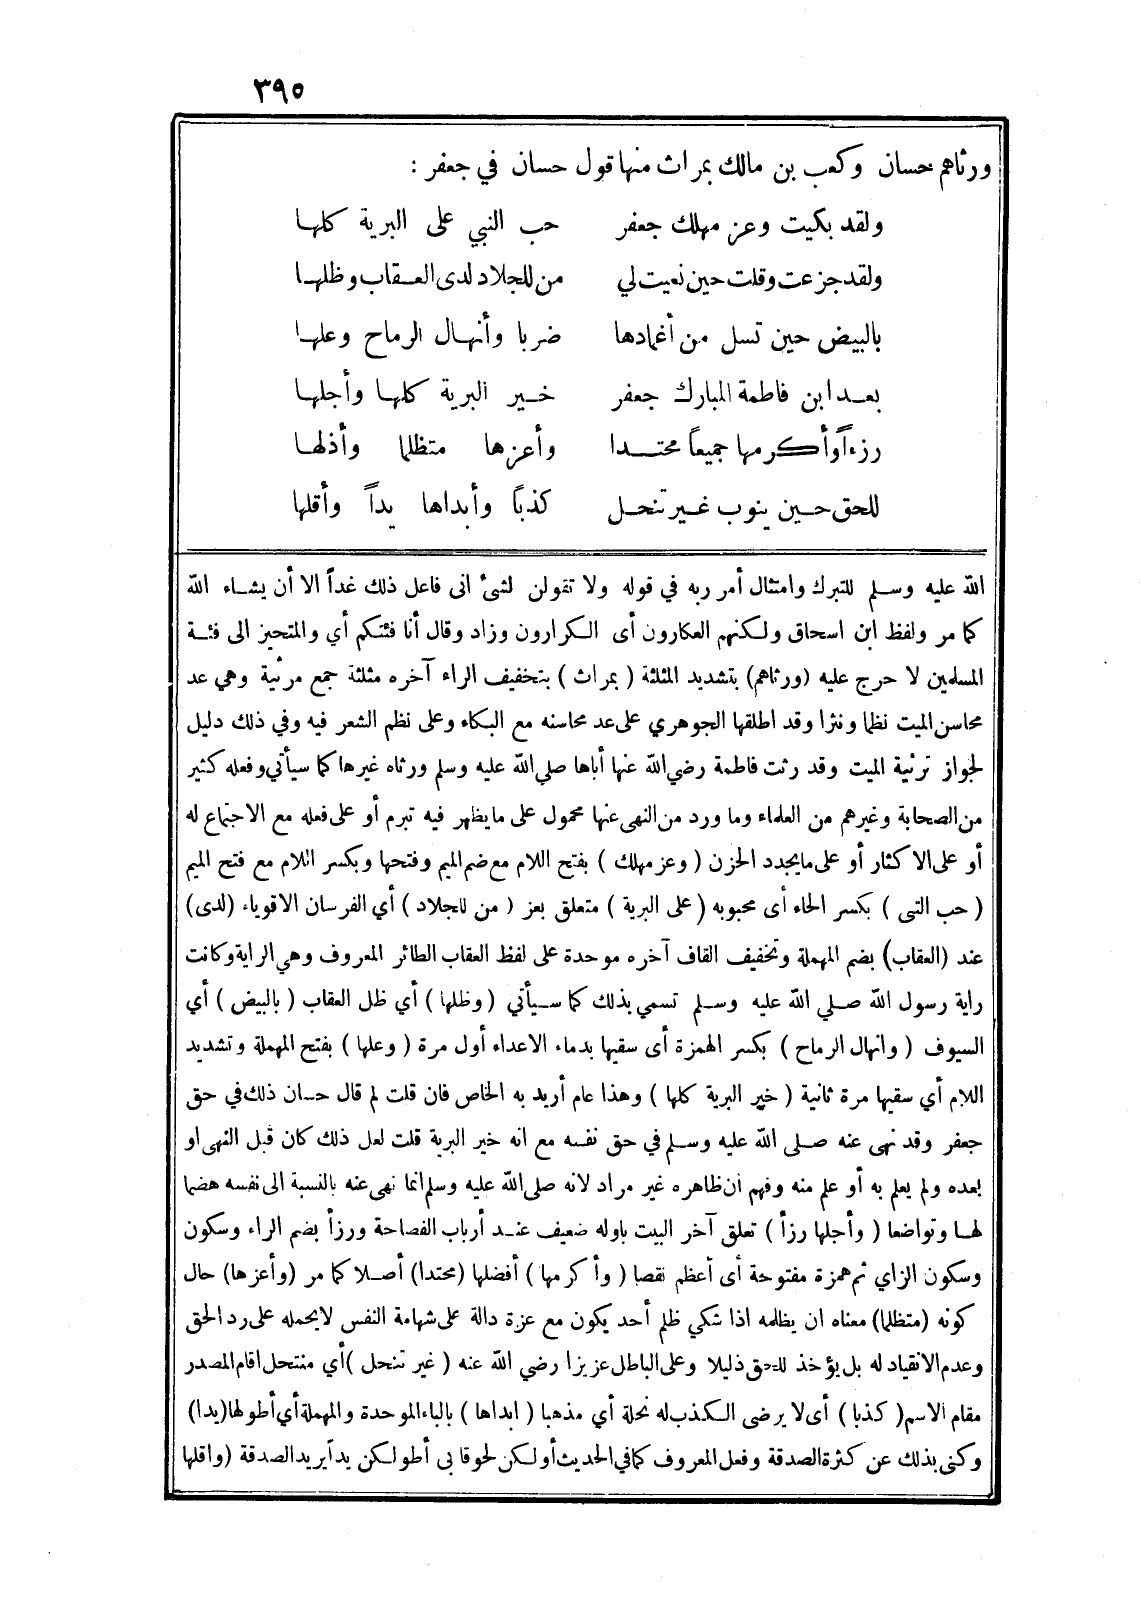 ٣٩٥
ورثاهم حسان وكعب بن مالك بمراث منها قول حسان في جعفر :
ولقد بكيت وعز مهلك جعفر حب النبي على البرية كلها
ولقد جزعت وقلت حين نعيت لي من للجلاد لدى العقاب وظلها
بالبيض حين تسل من أغمادها ضربا وأنهال الرماح وعلها
بعد ابن فاطمة المبارك جعفر خير البرية كلها وأجلها
رزءاً وأكرمها جميعاً محتدا وأعزها متظلما وأذلها
للحق حين ينوب غير تنحل كذباً وأبداها يداً وأقلها
الله عليه وسلم للتبرك وامتثال أمر ربه في قوله ولا تقولن لشئ انى فاعل ذلك غداً الا أن يشاء الله
كما مر ولفظ ابن اسحاق ولكنهم العكارون أى الكرارون وزاد وقال أنا فئتكم أي والمتحيز الى فئة
المسلمين لا حرج عليه (ورثاهم) بتشديد المثلثة ( بمراث ) بتخفيف الراء آخره مثلثة جمع مرثية وهي عد
محاسن الميت نظما ونثرا وقد اطلقها الجوهري على عد محاسنه مع البكاء وعلى نظم الشعر فيه وفي ذلك دليل
لجواز ترثية الميت وقد رثت فاطمة رضي الله عنها أباها صلي الله عليه وسلم ورثاه غيرها كما سيأتي وفعله كثير
من الصحابة وغيرهم من العلماء وما ورد من النهى عنها محمول على ما يظهر فيه تبرم أو على فعله مع الاجتماع له
أو على الاكثار أو على ما يجدد الحزن ( وعز مهلك ) بفتح اللام مع ضم الميم وفتحها وبكسر اللام مع فتح الميم
( حب النبى ) بكسر الحاء أى محبوبه ( على البرية ) متعلق بعز ( من للجلاد ) أي الفرسان الاقوياء (لدى)
عند (العقاب) بضم المهملة وتخفيف القاف آخره موحدة على لفظ العقاب الطائر المعروف وهي الراية وكانت
راية رسول الله صلي الله عليه وسلم تسمي بذلك كما سيأتي ( وظلها ) أي ظل العقاب ( بالبيض ) أي
السيوف ( وانهال الرماح ) بكسر الهمزة أى سقيها بدماء الاعداء أول مرة ( وعلها ) بفتح المهملة وتشديد
اللام أي سقيها مرة ثانية ( خير البرية كلها ) وهذا عام أريد به الخاص فان قلت لم قال حسان ذلك في حق
جعفر وقد نهى عنه صلى الله عليه وسلم في حق نفسه مع انه خير البرية قلت لعل ذلك كان قبل النهى او
بعده ولم يعلم به أو علم منه وفهم ان ظاهره غير مراد لانه صلى الله عليه وسلم انما نهى عنه بالنسبة الى نفسه هضما
لها وتواضعا ( وأجلها رزأ ) تعلق آخر البيت باوله ضعيف عند أرباب الفصاحة ورزأ بضم الراء وسكون
وسكون الزاي ثم همزة مفتوحة أى أعظم نقصا ( وأكرمها ) أفضلها (محتدا) أصلا كما مر (وأعزها) حال
كونه (متظلما) معناه ان يظلمه اذا شكي ظلم أحد يكون مع عزة دالة على شهامة النفس لا يحمله على رد الحق
وعدم الانقياد له بل يؤخذ للحق ذليلا وعلى الباطل عزيزا رضي الله عنه ( غير تنحل ) أي منتحل اقام المصدر
مقام الاسم ( كذبا ) أى لا يرضى الكذب له نحلة أي مذهبا ( ابداها ) بالباء الموحدة والمهملة أي أطولها (يدا)
وكنى بذلك عن كثرة الصدقة وفعل المعروف كما في الحديث أولكن لحوقا بى أطولكن يداً يريد الصدقة (واقلها